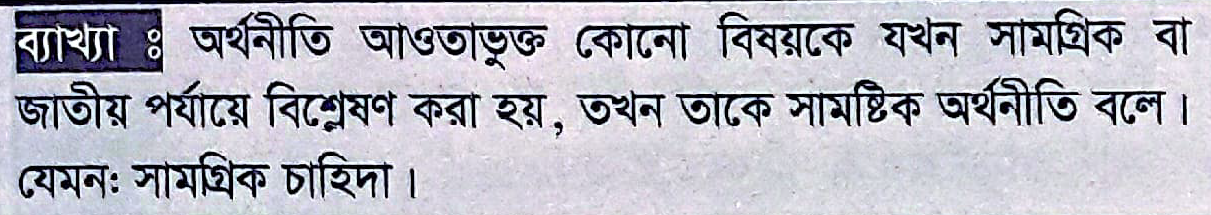 ব্যাখ্যা ঃ অর্থনীতি আওতাভুক্ত কোনো বিষয়কে যখন সামগ্রিক বা
জাতীয় পর্যায়ে বিশ্লেষণ করা হয়, তখন তাকে সামষ্টিক অর্থনীতি বলে।
যেমনঃ সামগ্রিক চাহিদা।